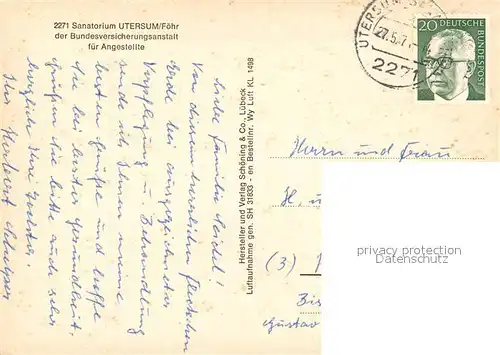 2271 Sanatorium UTERSUM/Föhr
der Bundesversicherungsanstalt
für Angestellte
Liebe Familie
Von diesem herrlichen Fleckchen
Erde bei ausgezeichneter
Verpflegung u. Behandlung
sende ich Ihnen meine
besten Grüße und hoffe
Sie bei bester Gesundheit.
Grüßen Sie bitte auch sehr
herzlich Ihre
Ihr Herbert
Hersteller und Verlag Schöning & Co., Lübeck
Luftaufnahme gen. SH 31833 - en Bestellnr. Wy Luft KL 1498
UTERSUM
27.5.7
2271
20 DEUTSCHE
BUNDESPOST
Herrn und Frau
H. u
(3)
Bis
Gustav
privacy protection
Datenschutz